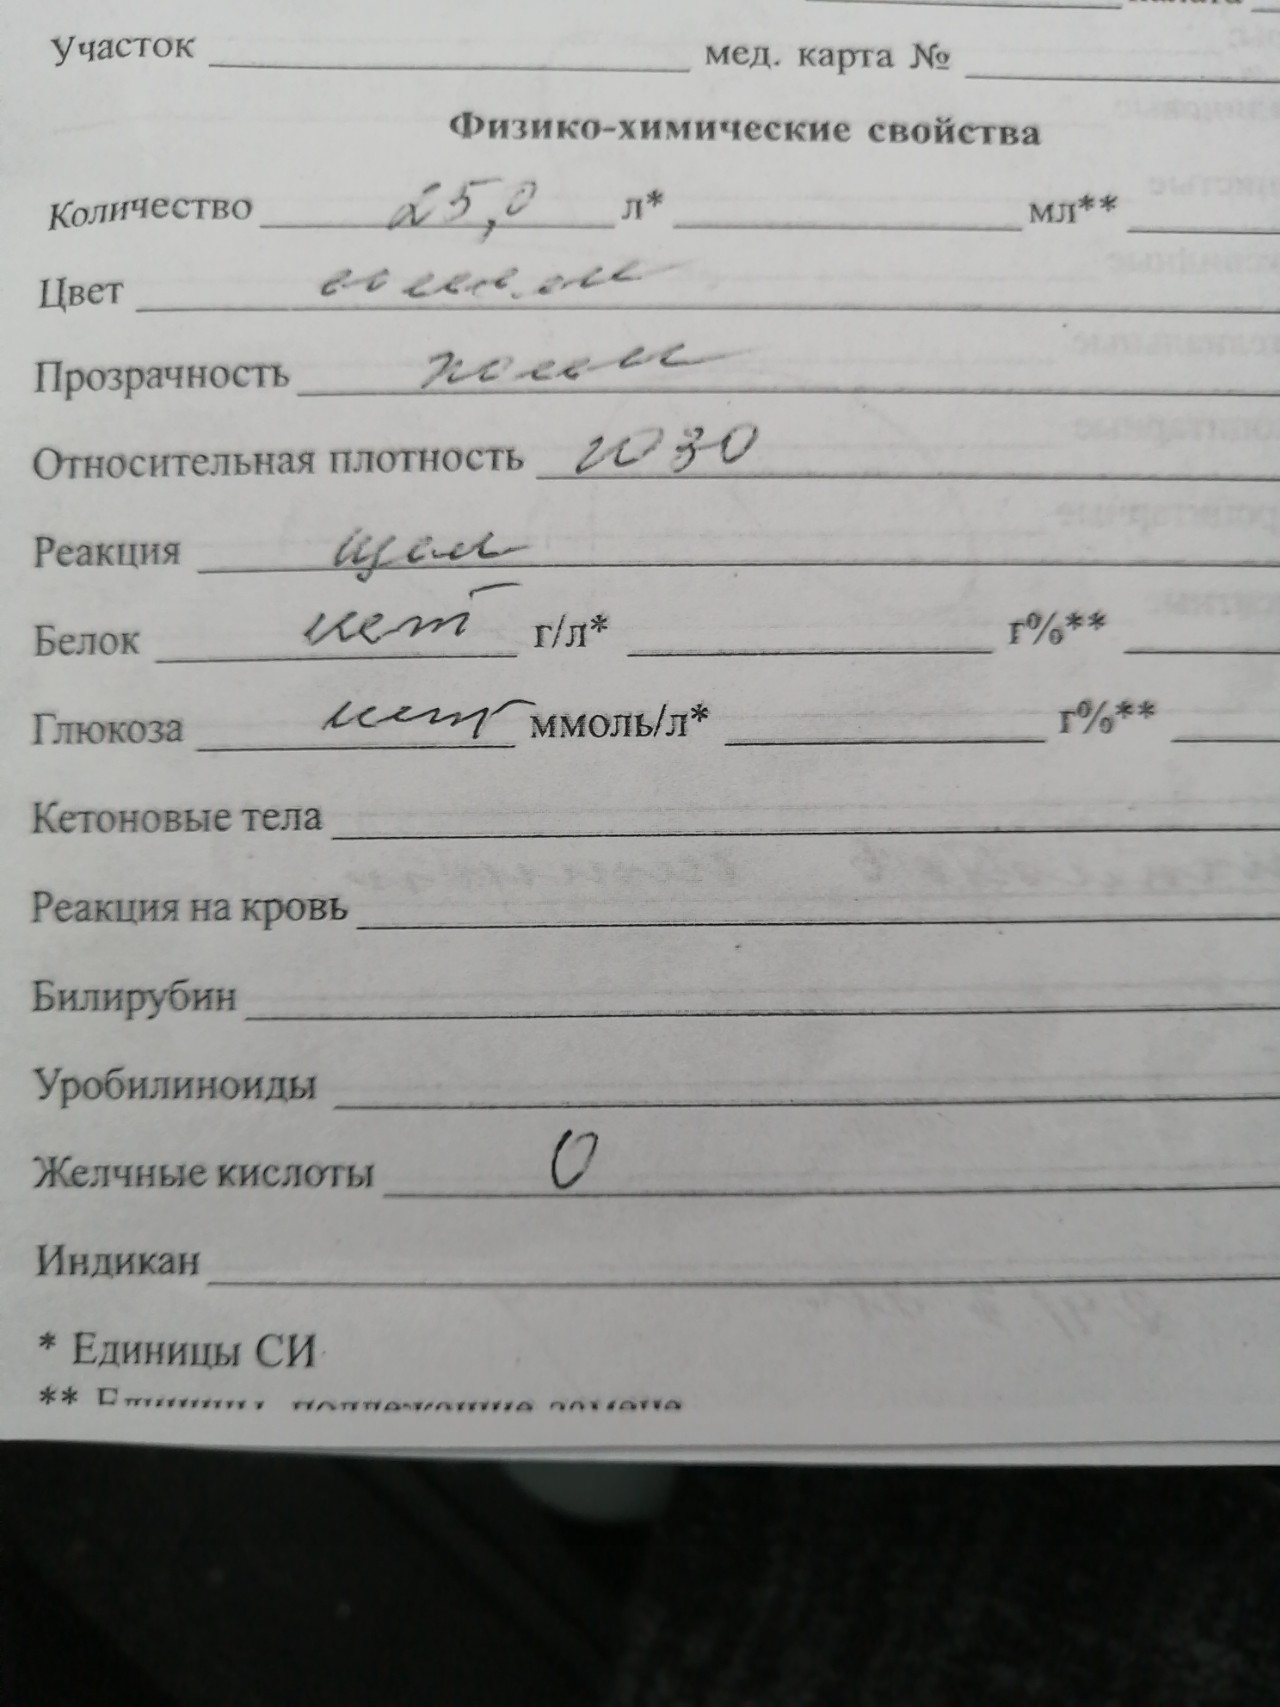 Участок мед. карта №
Физико-химические свойства
Количество 25,0 л* мл**
Цвет
Прозрачность полн
Относительная плотность 1030
Реакция щел
Белок нет г/л* г%**
Глюкоза нет ммоль/л* г%**
Кетоновые тела
Реакция на кровь
Билирубин
Уробилиноиды
Желчные кислоты 0
Индикан
* Единицы СИ
** Единицы, подлежащие замене